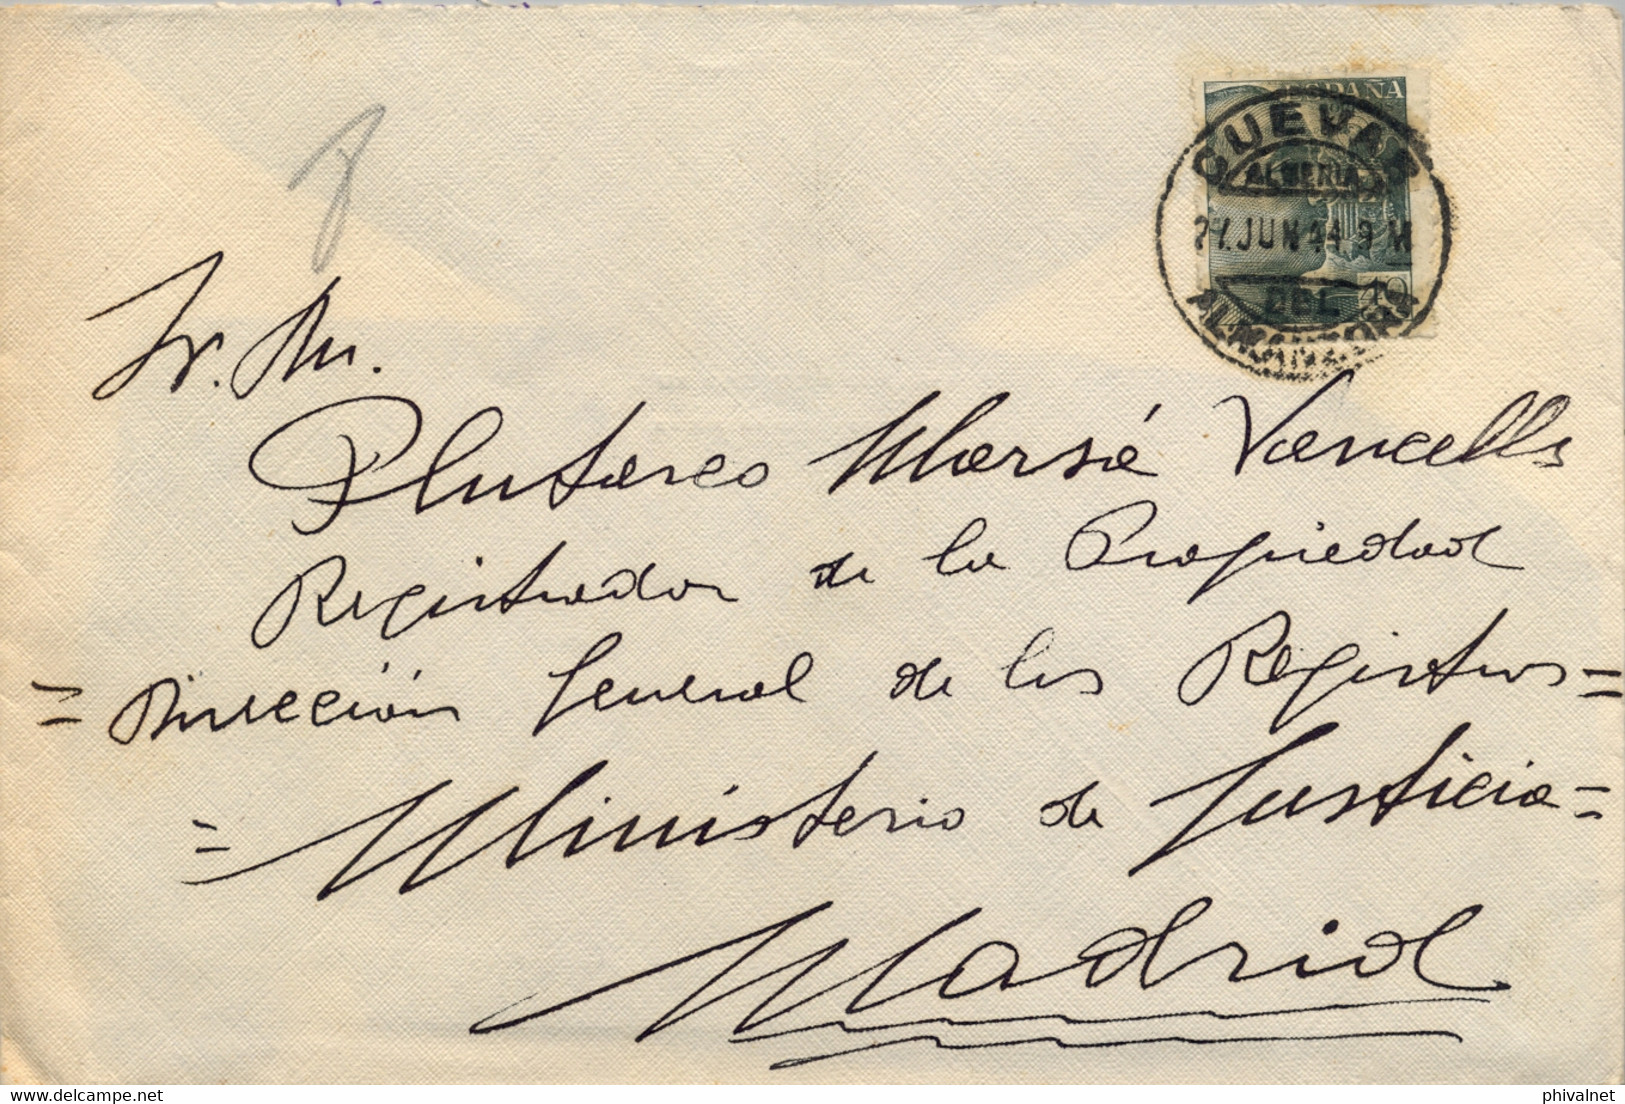 ESPAÑA
CUEVAS
ALMERIA
27.JUN 44 9 M
DEL
40
ALMANZORA
Sr. Dn.
Plutarco Marsá Vancells
Registrador de la Propiedad
= Dirección General de los Registros =
= Ministerio de Justicia =
Madrid
delcampe.net
phivalnet